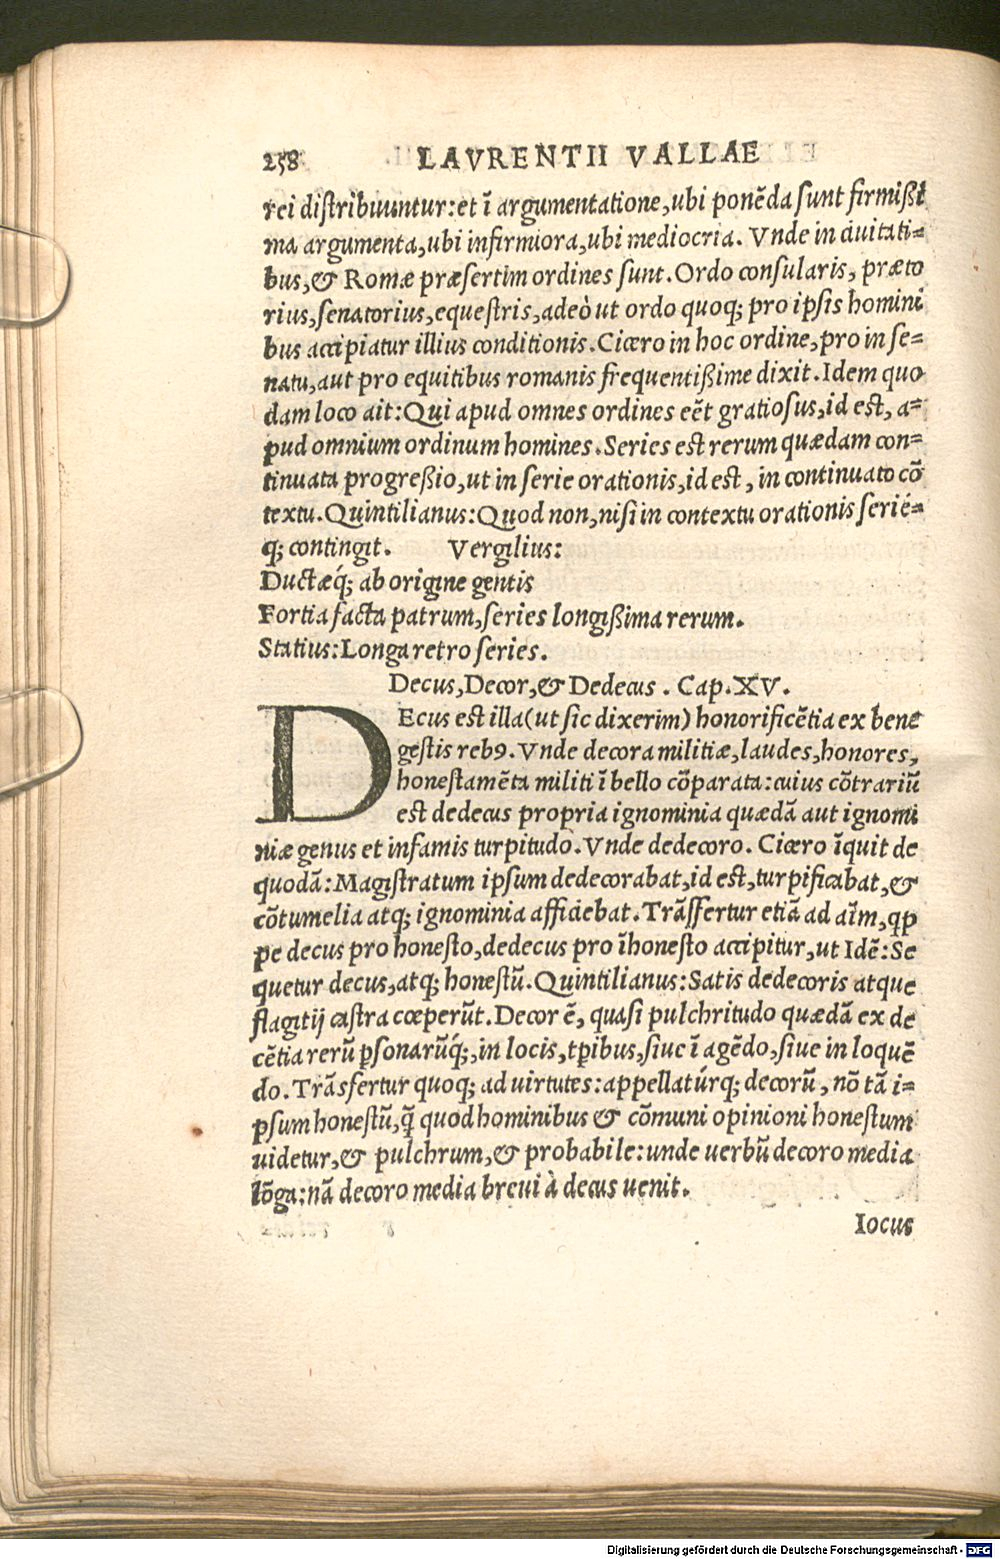 258 LAVRENTII VALLAE
rei distribuuntur: et ī argumentatione, ubi ponēda sunt firmißi
ma argumenta, ubi infirmiora, ubi mediocria. Vnde in ciuitati=
bus, & Romæ præsertim ordines sunt. Ordo consularis, præto
rius, senatorius, equestris, adeò ut ordo quoq; pro ipsis homini
bus accipiatur illius conditionis. Cicero in hoc ordine, pro in se=
natu, aut pro equitibus romanis frequentißime dixit. Idem quo
dam loco ait: Qui apud omnes ordines eēt gratiosus, id est, a=
pud omnium ordinum homines. Series est rerum quædam con=
tinuata progreßio, ut in serie orationis, id est, in continuato cō
textu. Quintilianus: Quod non, nisi in contextu orationis serié=
q; contingit. Vergilius:
Ductæq́; ab origine gentis
Fortia facta patrum, series longißima rerum.
Statius: Longa retro series.
Decus, Decor, & Dedecus. Cap. XV.
DEcus est illa (ut sic dixerim) honorificētia ex bene
gestis reb9. Vnde decora militiæ, laudes, honores,
honestamēta militi ī bello cōparata: cuius cōtrariū
est dedecus propria ignominia quædā aut ignomi
niæ genus et infamis turpitudo. Vnde dedecoro. Cicero īquit de
quodā: Magistratum ipsum dedecorabat, id est, turpificabat, &
cōtumelia atq; ignominia afficiebat. Trāsfertur etiā ad aīm, qp
pe decus pro honesto, dedecus pro īhonesto accipitur, ut Idē: Se
quetur decus, atq; honestū. Quintilianus: Satis dedecoris atque
flagitij castra cœperūt. Decor ē, quasi pulchritudo quædā ex de
cētia rerū ꝑsonarūq́;, in locis, tꝑibus, siue ī agēdo, siue in loquē
do. Trāsfertur quoq; ad uirtutes: appellatúrq; decorū, nō tā i=
psum honestū, q̄ quod hominibus & cōmuni opinioni honestum
uidetur, & pulchrum, & probabile: unde uerbū decoro media
lōga: nā decoro media breui à decus uenit.
Iocus
Digitalisierung gefördert durch die Deutsche Forschungsgemeinschaft - DFG